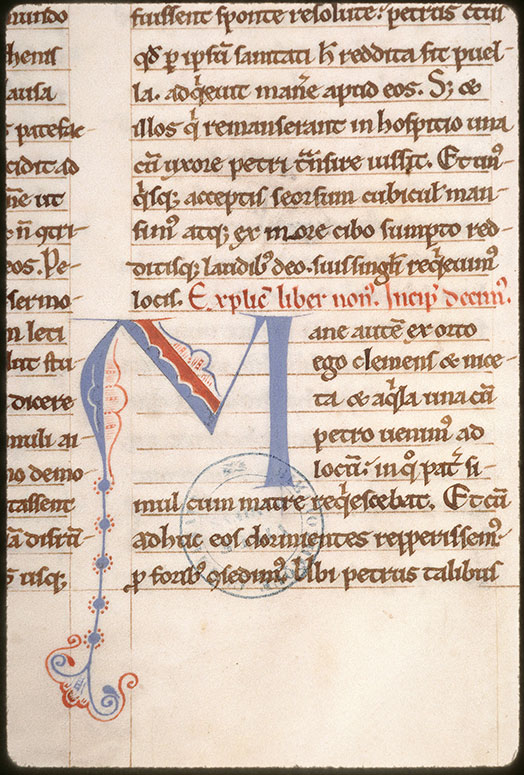 mundo
henis
ausa
patefac-
cidit ad
ne ut
n̄ q̄tri-
eos. Pe-
sermo-
m leti
dicere
muli ai-
no demo-
tassent
uisq;
fuissent sponte resolute: petrus
qd̄ p ipsā sanitati h̄ reddita sit puel-
la. adq̇eiut mane aput eos. S; &
illos q̇ remanserant in hospitio una
cū uxore petri t̄nsire iussit. Et un⁹-
q̇sq; acceptis seorsum cubicul' man-
sim⁹ atq; ex more cibo sumpto red-
ditisq; laudib⁹ deo. suis singl'i req̇euim⁹
locis. Explic̄ liber non⁹. Incip̄ decim⁹.
Mane autē ex orto
ego clemens & nice-
ta & aq̇la una cū
petro uenim⁹ ad
locū: in q̊ pat̄ si-
mul cum matre req̇escebat. Et cū
adhuc eos dormientes repperissem⁹
p̱ forib⁹ ɔsedim⁹. Ubi petrus talibus